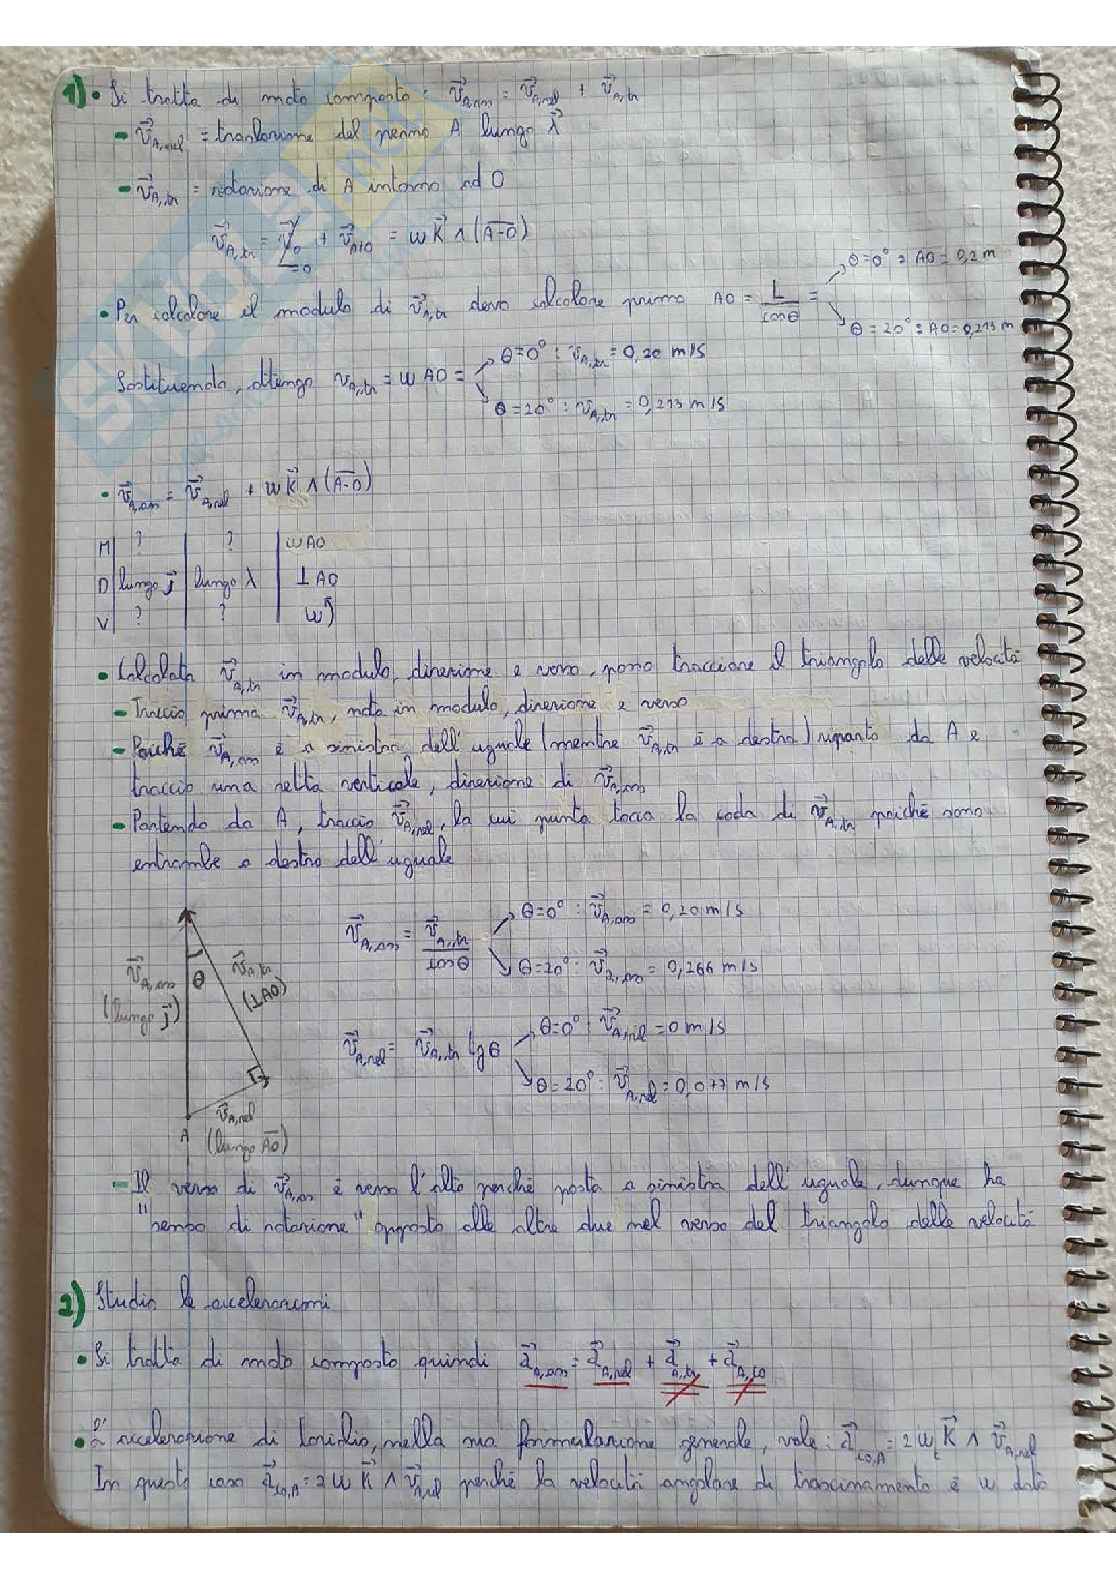 1) • Si tratta di moto composto: v⃗A,as = v⃗A,rel + v⃗A,tr
- v⃗A,rel = traslazione del perno A lungo λ⃗
- v⃗A,tr = rotazione di A intorno ad O
v⃗A,tr = v⃗o + v⃗A/O = ω k⃗ ∧ (A-O)
=0
• Per calcolare il modulo di v⃗A,tr devo calcolare prima AO = L/cosθ =
θ=0° : AO = 0,2 m
θ = 20° : AO = 0,213 m
Sostituendo, ottengo vA,tr = ω AO =
θ=0° : vA,tr = 0,20 m/s
θ = 20° : vA,tr = 0,213 m/s
• v⃗A,as = v⃗A,rel + ω k⃗ ∧ (A-O)
M | ? | ? | ωAO
D | lungo j⃗ | lungo λ | ⊥ AO
V | ? | ? | ω
• Calcolata v⃗A,tr in modulo, direzione e verso, posso tracciare il triangolo delle velocità
- Traccio prima v⃗A,tr, nota in modulo, direzione e verso
- Poiché v⃗A,as è a sinistra dell'uguale (mentre v⃗A,tr è a destra) riparto da A e
traccio una retta verticale, direzione di v⃗A,as
- Partendo da A, traccio v⃗A,rel, la cui punta tocca la coda di v⃗A,tr poiché sono
entrambe a destra dell'uguale
v⃗A,as
(lungo j⃗)
θ
v⃗A,tr
(⊥AO)
v⃗A,rel
(lungo AO)
A
v⃗A,as = v⃗A,tr/cosθ
θ=0° : v⃗A,as = 0,20 m/s
θ = 20° : v⃗A,as = 0,266 m/s
v⃗A,rel = v⃗A,tr tgθ
θ=0° : v⃗A,rel = 0 m/s
θ = 20° : v⃗A,rel = 0,077 m/s
- Il verso di v⃗A,as è verso l'alto perché posta a sinistra dell'uguale, dunque ha
"senso di rotazione" opposto alle altre due nel verso del triangolo delle velocità
2) Studio le accelerazioni
• Si tratta di moto composto quindi a⃗A,as = a⃗A,rel + a⃗A,tr + a⃗A,co
• L'accelerazione di Coriolis, nella sua formulazione generale, vale: a⃗co,A = 2 ωt k⃗ ∧ v⃗A,rel
In questo caso a⃗co,A = 2 ω k⃗ ∧ v⃗A,rel perché la velocità angolare di trascinamento è ω data